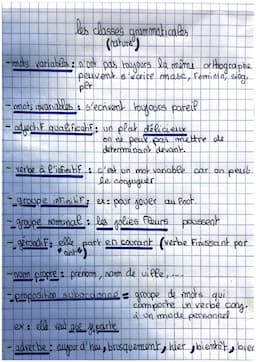 les classes grammaticales
(nature)
- mots variables : n'ont pas toujours la même orthographe
peuvent s'écrire masc, feminin, sing,
plr
- mots invariables : s'ecrivent toujours pareil
- adjectif qualificatif : un plat délicieux
on ne peut pas mettre de
determinant devant.
- verbe à l'infinitif : c'est un mot variable car on peut
le conjuguer
- groupe infinitif : ex : pour jouer au foot.
- groupe nominal : les jolies fleurs poussent
- gérondif : elle part en courant (verbe finissant par
"ant")
- nom propre : prénom, nom de ville,...
- proposition subordonnée = groupe de mots qui
comporte un verbe conj.
à un mode personnel
ex : elle veut que je parte
- adverbe : aujourd'hui, brusquement, hier, bientôt, bien